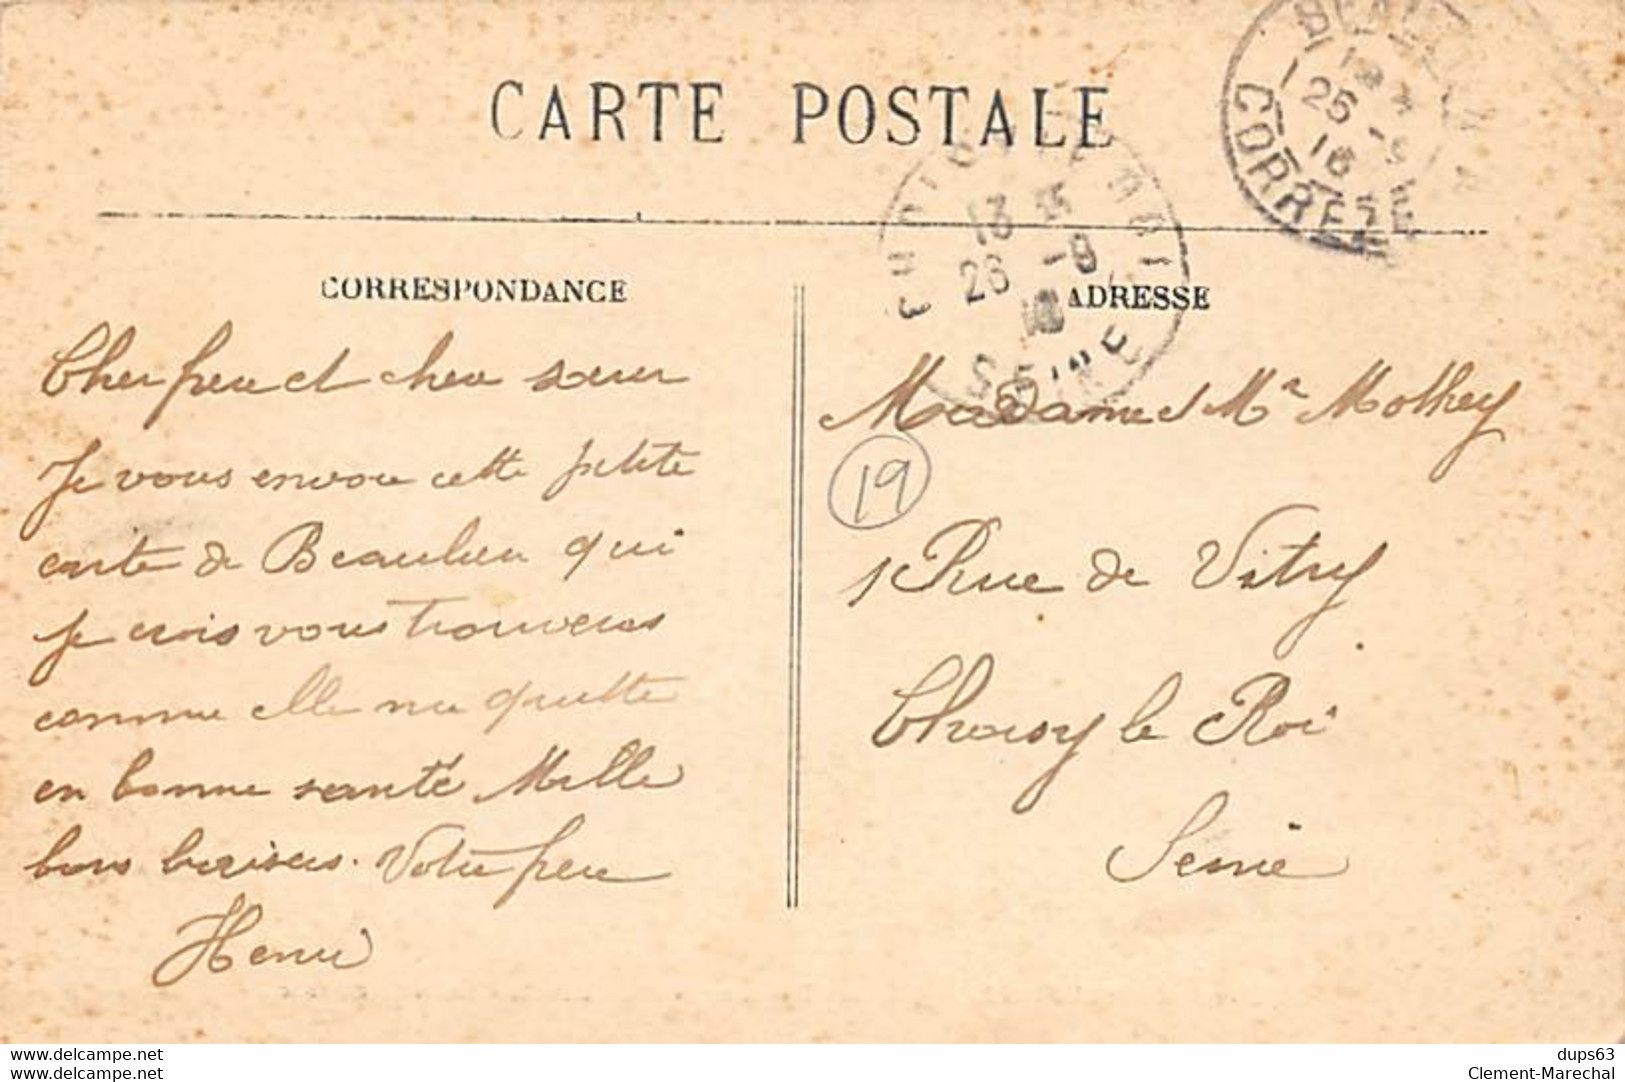 CARTE POSTALE
CORRESPONDANCE
Cher frere et cher sœur
Je vous envoie cette petite
carte de Beaulieu qui
je crois vous trouveras
comme elle me quitte
en bonne santé Mille
bons baisers. Votre frere
Henri
ADRESSE
Madame et Mr Mothey
19
1 Rue de Vitry
Choisy le Roi
Seine
CORREZE
25
16
13
26 -9
SEINE
www.delcampe.net
www.delcampe.com
dups63
Clement-Marechal